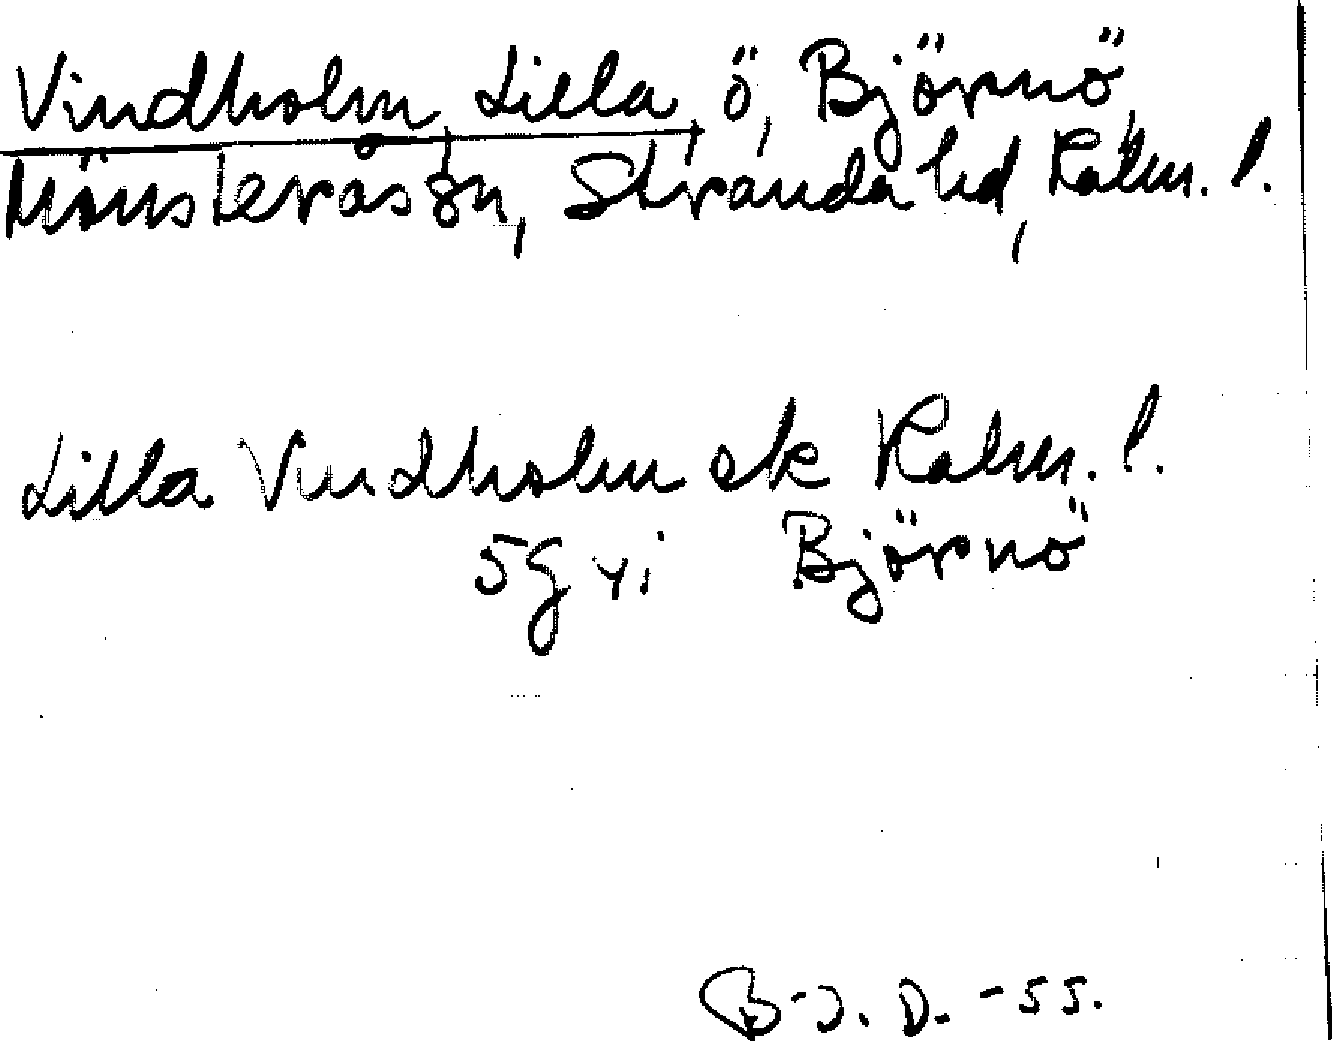 Vindholm, Lilla, ö, Björnö,
Mönsterås sn, Stranda hd, Kalm. l.
Lilla Vindholm ek Kalm. l.
5g yi Björnö
B-J. D. -55.